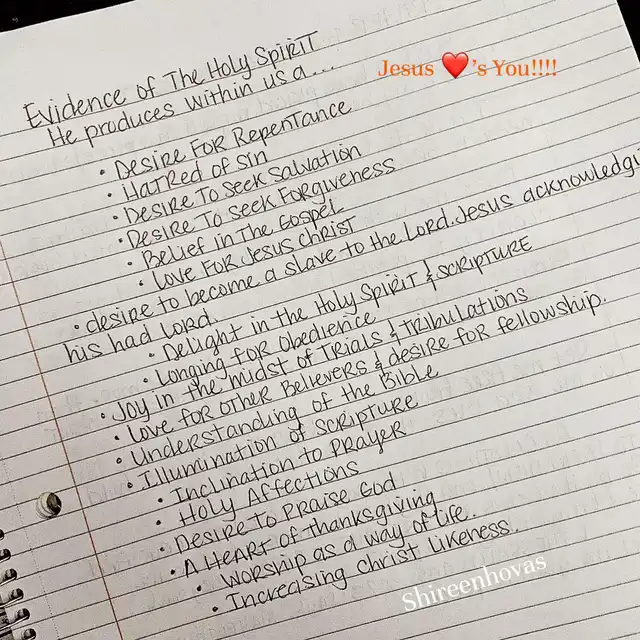 Jesus ❤️'s You!!!!
Evidence of The Holy Spirit
He produces within us a...
• Desire For Repentance
• Hatred of Sin
• Desire To Seek Salvation
• Desire To Seek Forgiveness
• Belief in The Gospel
• Love For Jesus Christ
• desire to become a slave to the Lord. Jesus acknowledgi
his had Lord
• Delight in the Holy Spirit & scripture
• Longing for Obedience
• Joy in the midst of Trials & Tribulations
• Love for other Believers & desire for fellowship.
• Understanding of the Bible
• Illumination of scripture
• Inclination to prayer
• Holy Affections
• Desire to Praise God
• A Heart of thanksgiving
• Worship as a way of life.
• Increasing Christ likeness.
Shireenhovas